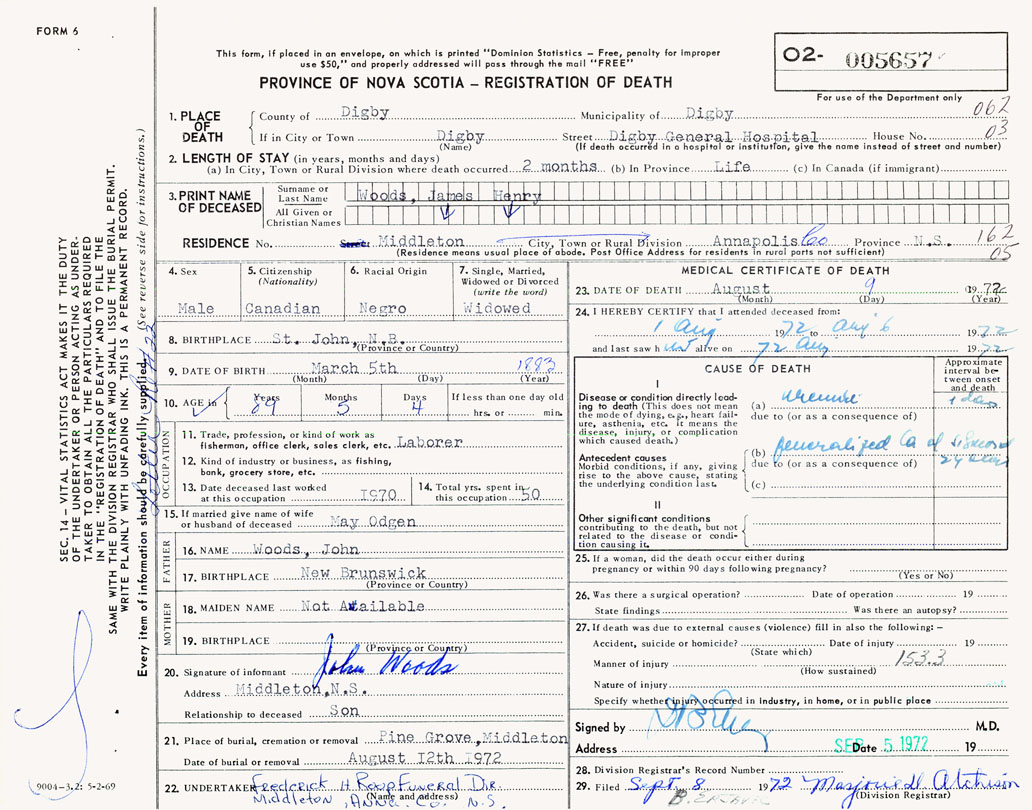 FORM 6
This form, if placed in an envelope, on which is printed "Dominion Statistics – Free, penalty for improper
use $50," and properly addressed will pass through the mail "FREE"
PROVINCE OF NOVA SCOTIA – REGISTRATION OF DEATH
02- 005657
For use of the Department only
062
03
1. PLACE OF DEATH
County of Digby Municipality of Digby
If in City or Town Digby Street Digby General Hospital House No.
(Name) (If death occurred in a hospital or institution, give the name instead of street and number)
2. LENGTH OF STAY (in years, months and days)
(a) In City, Town or Rural Division where death occurred 2 months (b) In Province Life (c) In Canada (if immigrant)
3. PRINT NAME OF DECEASED
Surname or Last Name Woods, James Henry
All Given or Christian Names
RESIDENCE No. Street Middleton City, Town or Rural Division Annapolis Co Province N.S.
(Residence means usual place of abode. Post Office Address for residents in rural parts not sufficient)
162
05
4. Sex
Male
5. Citizenship
(Nationality)
Canadian
6. Racial Origin
Negro
7. Single, Married,
Widowed or Divorced
(write the word)
Widowed
8. BIRTHPLACE St. John, N.B.
(Province or Country)
9. DATE OF BIRTH March 5th 1883
(Month) (Day) (Year)
10. AGE in Years Months Days If less than one day old
89 5 4 hrs. or min.
OCCUPATION
11. Trade, profession, or kind of work as
fisherman, office clerk, sales clerk, etc. Laborer
12. Kind of industry or business, as fishing,
bank, grocery store, etc.
13. Date deceased last worked
at this occupation 1970
14. Total yrs. spent in
this occupation 50
15. If married give name of wife
or husband of deceased May Odgen
FATHER
16. NAME Woods, John
17. BIRTHPLACE New Brunswick
(Province or Country)
MOTHER
18. MAIDEN NAME Not Available
19. BIRTHPLACE
(Province or Country)
20. Signature of informant John Woods
Address Middleton, N.S.
Relationship to deceased Son
21. Place of burial, cremation or removal Pine Grove, Middleton
Date of burial or removal August 12th 1972
22. UNDERTAKER Frederick H Roop Funeral Dir.
(Name and address)
Middleton, Anna. Co. N.S.
MEDICAL CERTIFICATE OF DEATH
23. DATE OF DEATH August 9 1972
(Month) (Day) (Year)
24. I HEREBY CERTIFY that I attended deceased from:
1 Aug 1972 to Aug 6 1972
and last saw h alive on 72 Aug 1972
CAUSE OF DEATH
Approximate
interval be-
tween onset
and death
I
Disease or condition directly lead-
ing to death (This does not
mean the mode of dying, e.g., heart fail-
ure, asthenia, etc. it means the
disease, injury, or complication
which caused death.)
(a) uremia
due to (or as a consequence of)
Antecedent causes
Morbid conditions, if any, giving
rise to the above cause, stating
the underlying condition last.
(b) generalized Ca of sigmoid
due to (or as a consequence of)
(c)
II
Other significant conditions
contributing to the death, but not
related to the disease or condi-
tion causing it.
25. If a woman, did the death occur either during
pregnancy or within 90 days following pregnancy?
(Yes or No)
26. Was there a surgical operation? Date of operation 19
State findings Was there an autopsy?
27. If death was due to external causes (violence) fill in also the following: –
Accident, suicide or homicide? Date of injury 19
(State which)
Manner of injury 153.3
(How sustained)
Nature of injury
Specify whether injury occurred in industry, in home, or in public place
Signed by M.D.
Address Date SEP 5 1972 19
28. Division Registrar's Record Number
29. Filed Sept. 8 1972 Marjorie H. Atchison
(Division Registrar)
SEC. 14 – VITAL STATISTICS ACT MAKES IT THE DUTY
OF THE UNDERTAKER OR PERSON ACTING AS UNDER-
TAKER TO OBTAIN ALL THE PARTICULARS REQUIRED
IN THE "REGISTRATION OF DEATH" AND TO FILE THE
SAME WITH THE DIVISION REGISTRAR WHO SHALL ISSUE THE BURIAL PERMIT.
WRITE PLAINLY WITH UNFADING INK. THIS IS A PERMANENT RECORD.
Every item of information should be carefully supplied. (See reverse side for instructions.)
9004–3.2: 5-2-69